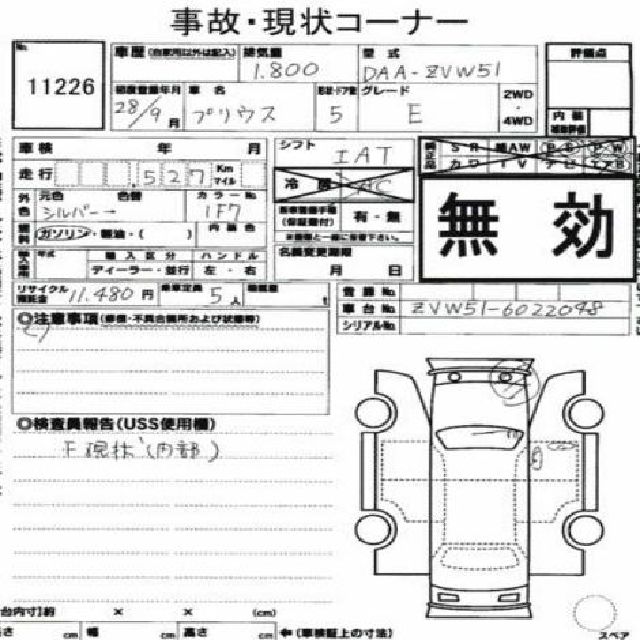 事故・現状コーナー
No. 11226
車歴 (自家用以外は記入) 排気量 1.800 型式 DAA-ZVW51 評価点
初度登録年月 28/9月 車名 プリウス ドア数 5 グレード E 2WD・4WD 内装
車検 年 月 シフト IAT
走行 527 Km マイル 冷房 AC
外色 元色 シルバー 色替 カラーNo. 1F7 有・無 無効
燃料 ガソリン・軽油・( ) 内装色
年式 輸入区分 ハンドル 名義変更期限
ディーラー・並行 左・右 月 日
リサイクル預託金 11.480円 乗車定員 5人 積載量 t 登録No.
車台No. ZVW51-6022048
シリアルNo.
◎注意事項(修復・不具合箇所および状態等)
◎検査員報告(USS使用欄)
F現状(内部)
荷台内寸 約 × × (cm)
長さ cm 幅 cm 高さ cm ←(車検証上の寸法) スペア